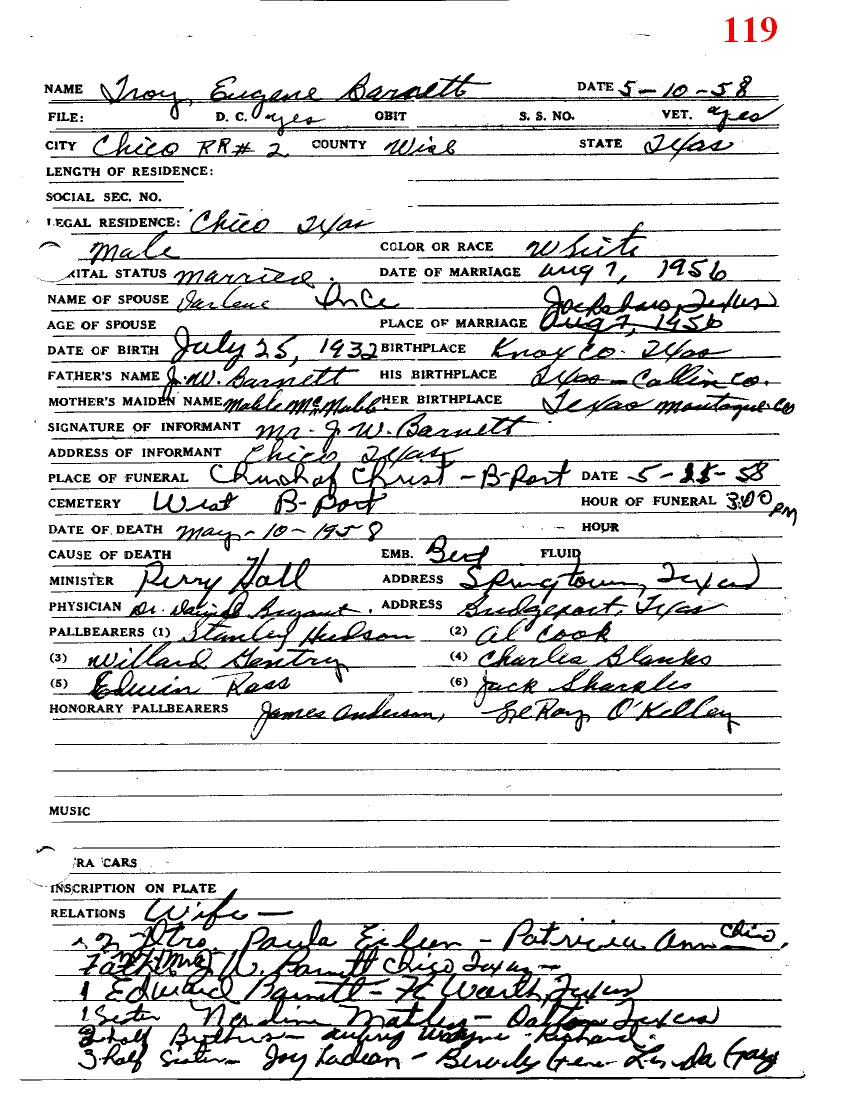 119
NAME Troy, Eugene Barnett DATE 5-10-58
FILE: D. C. yes OBIT S. S. NO. VET. yes
CITY Chico RR# 2 COUNTY Wise STATE Texas
LENGTH OF RESIDENCE:
SOCIAL SEC. NO.
LEGAL RESIDENCE: Chico Texas
Male COLOR OR RACE White
RITAL STATUS married. DATE OF MARRIAGE Aug 7, 1956
NAME OF SPOUSE Darlene Price Jacksboro, Texas
AGE OF SPOUSE PLACE OF MARRIAGE Aug 7, 1956
DATE OF BIRTH July 25, 1932 BIRTHPLACE Knox Co. Texas
FATHER'S NAME J. W. Barnett HIS BIRTHPLACE Texas - Collin Co.
MOTHER'S MAIDEN NAME HER BIRTHPLACE Texas Montague Co
SIGNATURE OF INFORMANT Mr. J W. Barnett
ADDRESS OF INFORMANT Chico Texas
PLACE OF FUNERAL Church of Christ - B-Port DATE 5-11-58
CEMETERY West B-port HOUR OF FUNERAL 3:00 PM
DATE OF DEATH May - 10 - 1958 HOUR
CAUSE OF DEATH EMB. FLUID
MINISTER Perry Hall ADDRESS Springtown, Texas
PHYSICIAN Dr. Bryant. ADDRESS Bridgeport, Texas
PALLBEARERS (1) Stanley Hudson (2) Al Cook
(3) Willard Gentry (4) Charles Blanks
(5) Edwin Ross (6) Jack Sharples
HONORARY PALLBEARERS James Anderson, LeRoy O'Kelley
MUSIC
RA CARS
INSCRIPTION ON PLATE
RELATIONS Wife -
2 Dtrs. Paula Eileen - Patricia Ann Chico,
Father Mr & Mrs J. W. Barnett Chico Texas -
1 Edward Barnett - Ft Worth, Texas
1 Sister Texas
2 half Brothers - Wayne - Richard.
3 half Sisters Joy - Beverly Gene - Linda Gay